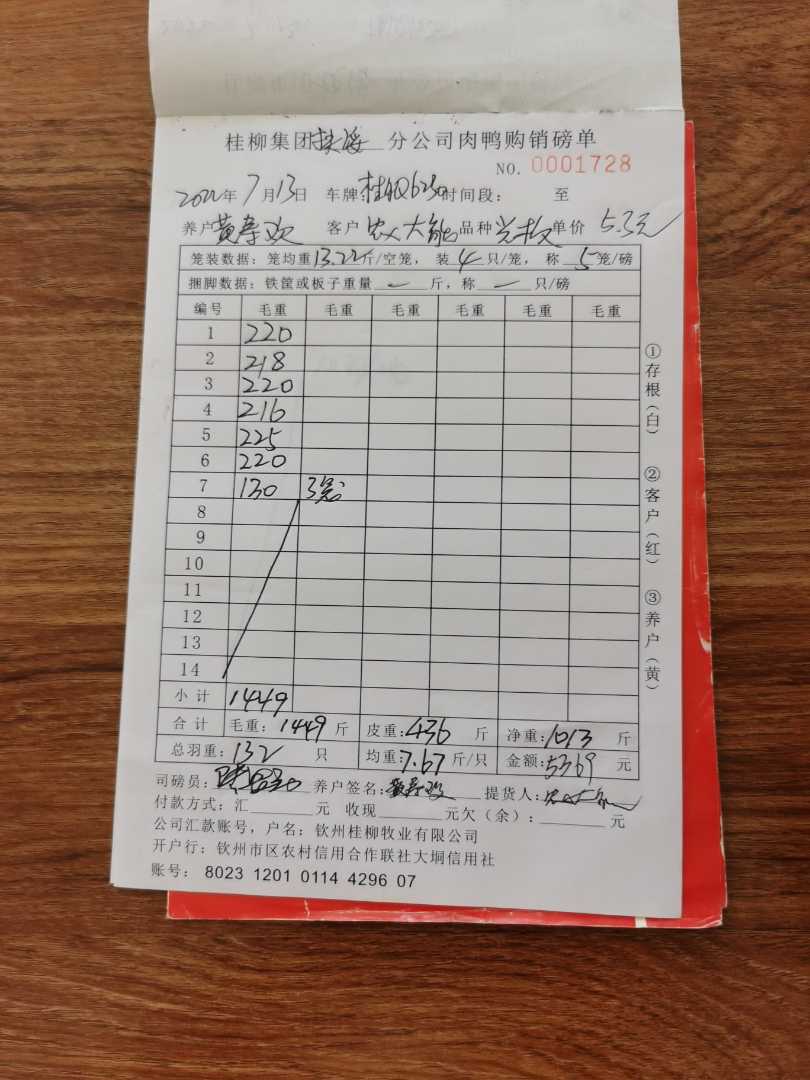 桂柳集团扶绥分公司肉鸭购销磅单
NO. 0001728
2022年7月13日 车牌:桂AQ6230时间段: 至
养户黄寿欢 客户 品种 单价 5.3元
笼装数据:笼均重13.22斤/空笼,装4只/笼,称5笼/磅
捆脚数据:铁筐或板子重量—斤,称—只/磅
编号 毛重 毛重 毛重 毛重 毛重 毛重
1 220
2 218
3 220
4 216
5 225
6 220
7 130 3笼
8
9
10
11
12
13
14
小计 1449
合计 毛重:1449斤 皮重:436斤 净重:1013斤
总羽重:132只 均重:7.67斤/只 金额:5369元
司磅员: 养户签名:黄寿欢 提货人:
付款方式:汇 元 收现 元欠(余): 元
公司汇款账号,户名:钦州桂柳牧业有限公司
开户行:钦州市区农村信用合作联社大垌信用社
账号:8023 1201 0114 4296 07
①存根(白)
②客户(红)
③养户(黄)